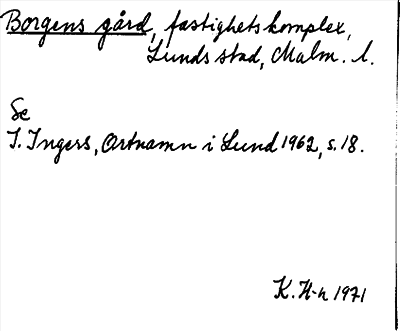 Borgens gård, fastighetskomplex,
Lunds stad, Malm. l.
Se
I. Ingers, Ortnamn i Lund 1962, s. 18.
K. H-n 1971